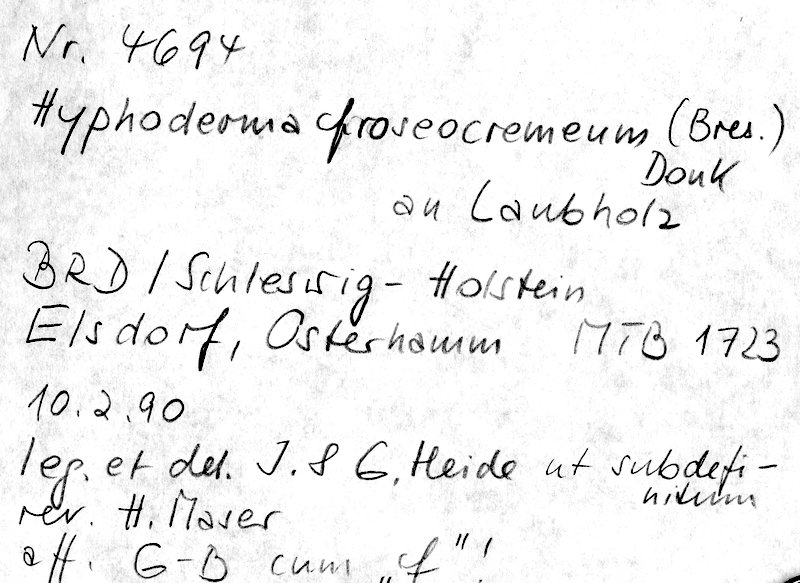 Nr. 4694
Hyphoderma roseocremeum (Bres.)
Donk
an Laubholz
BRD / Schleswig-Holstein
Elsdorf, Osterhamm MTB 1723
10.2.90
leg. et det. J. & G. Heide ut subdefi-
nitum
rev. H. Maser
att. G-B cum „f"!